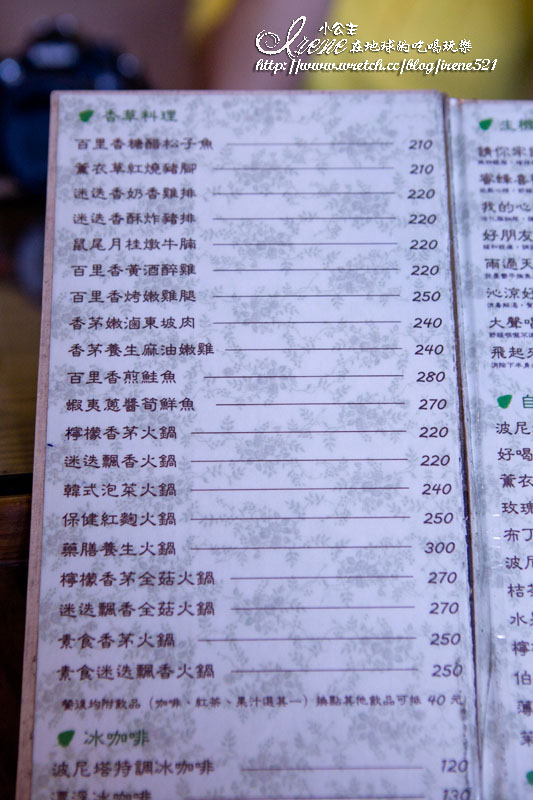 小公主
Irene 在地球的吃喝玩樂
http://www.wretch.cc/blog/irene521
香草料理
百里香糖醋松子魚 210
薰衣草紅燒豬腳 210
迷迭香奶香雞排 220
迷迭香酥炸豬排 220
鼠尾月桂燉牛腩 220
百里香黃酒醉雞 220
百里香烤嫩雞腿 250
香茅嫩滷東坡肉 240
香茅養生麻油嫩雞 240
百里香煎鮭魚 280
蝦夷蔥醬筍鮮魚 270
檸檬香茅火鍋 220
迷迭飄香火鍋 220
韓式泡菜火鍋 240
保健紅麴火鍋 250
藥膳養生火鍋 300
檸檬香茅全菇火鍋 270
迷迭飄香全菇火鍋 270
素食香茅火鍋 250
素食迷迭飄香火鍋 250
餐後均附飲品（咖啡、紅茶、果汁選其一）換點其他飲品可抵 40 元
冰咖啡
波尼塔特調冰咖啡 120
漂浮冰咖啡 130
生機
請你來
蜜蜂喜
我的心
好朋友
雨過天
沁涼好
大聲唱
飛起來
自
波尼
好喝
薰衣
玫瑰
布丁
波尼
桔茶
水果
檸
伯
薄